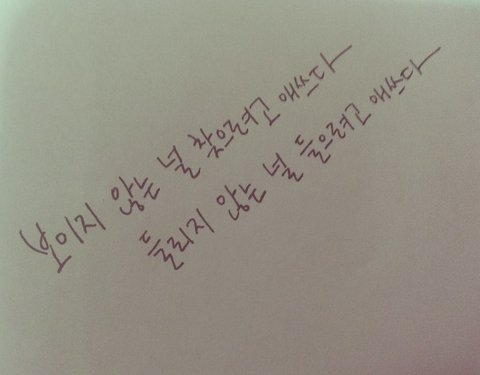 보이지 않는 널 찾으려고 애쓰다
들리지 않는 널 들으려고 애쓰다